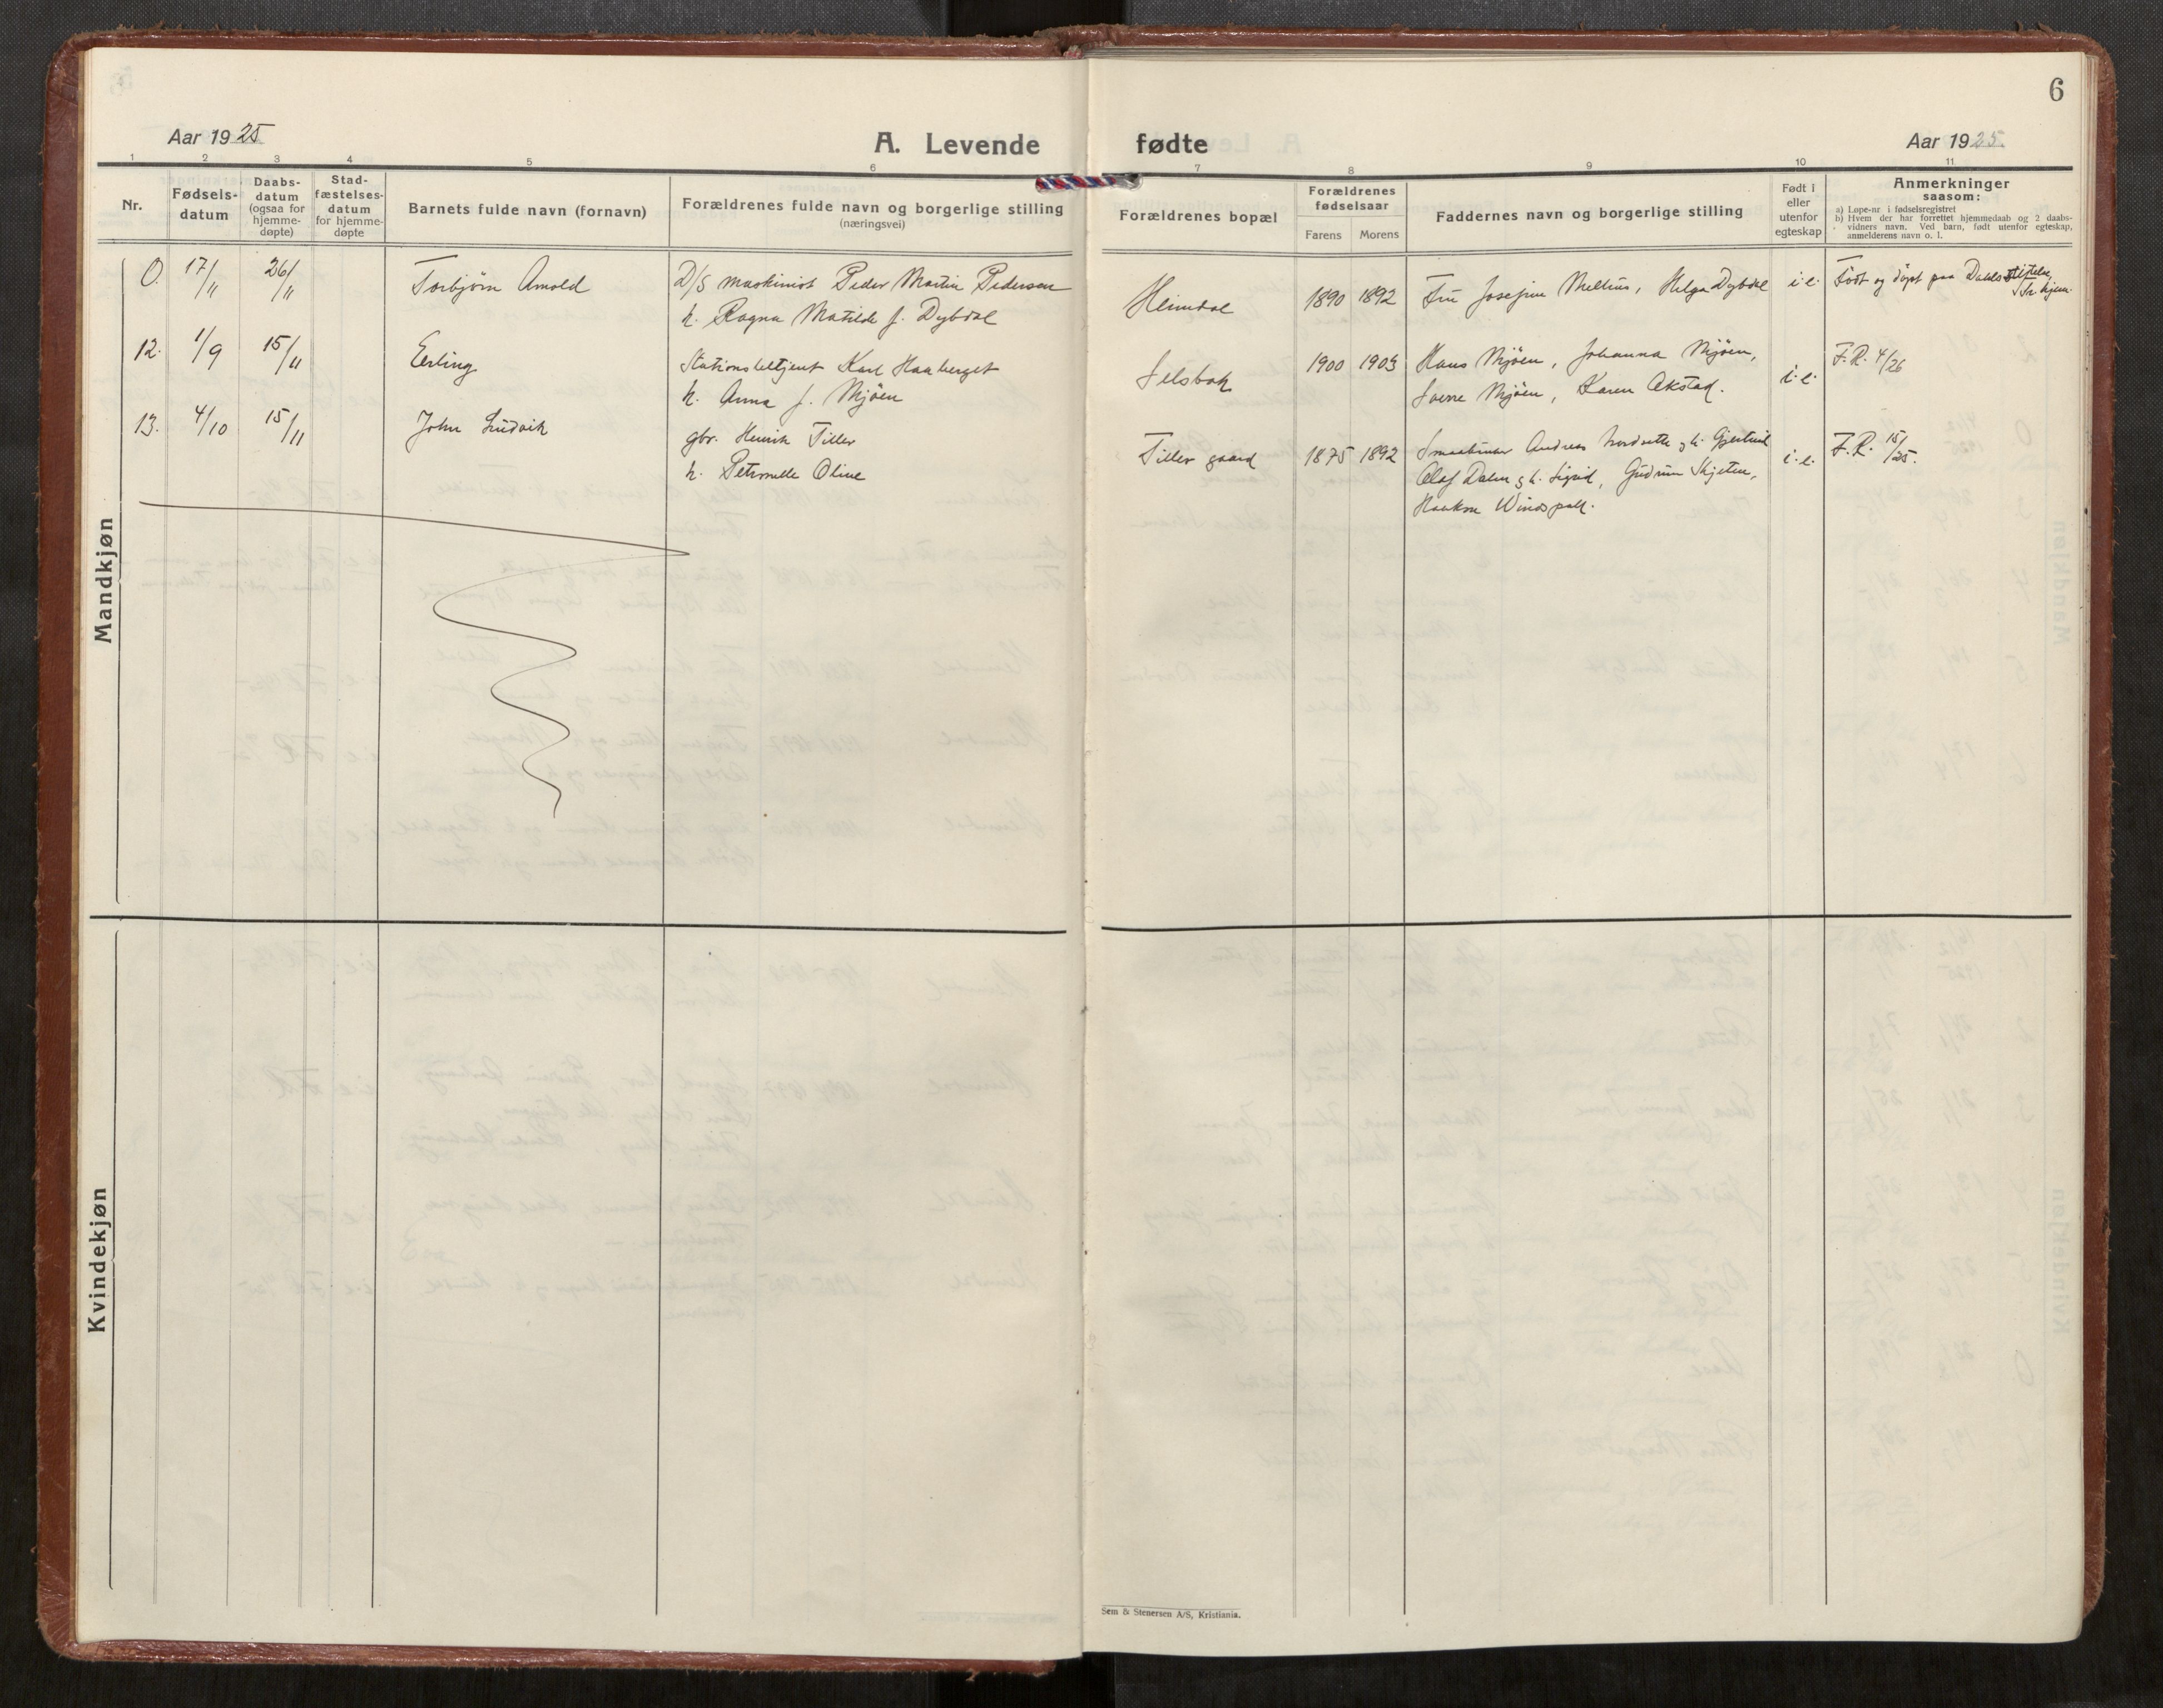 6
Aar 1925
A. Levende fødte
Aar 1925.
1 2 3 4 5 6 7 8 9 10 11
Nr.
Fødsels-
datum
Daabs-
datum
(ogsaa for
hjemme-
døpte)
Stad-
fæstelses-
datum
for hjemme-
døpte
Barnets fulde navn (fornavn)
Forældrenes fulde navn og borgerlige stilling
(næringsvei)
Forældrenes bopæl
Forældrenes
fødselsaar
Farens Morens
Faddernes navn og borgerlige stilling
Født i
eller
utenfor
egteskap
Anmerkninger
saasom:
a) Løpe-nr i fødselsregistret
b) Hvem der har forrettet hjemmedaab og 2 daabs-
vidners navn. Ved barn, født utenfor egteskap,
anmelderens navn o. l.
Mandkjøn
0. 17/11 26/11 Torbjørn Arnold D/S maskinist Peder Martin Pedersen
h. Ragna Matilde f. Dybdal
Heimdal 1890 1892 Fru Josefine Mellius, Helga Dybdal i.e. Født og døpt paa Dahls stiftelse,
Tr.hjem.
12. 1/9 15/11 Erling Stationsbetjent Karl Haaberget
h. Anna f. Mjøen
Selsbak 1900 1903 Hans Mjøen, Johanna Mjøen,
Sverre Mjøen, Karen Akstad. i.e. F.R. 4/26
13. 4/10 15/11 John Ludvik gbr. Henrik Tiller
h. Petronelle Oline
Tiller gaard 1875 1892 Smaabruker Andreas Nordsette og h. Gjertrud
Olaf Dalen og h. Sigrid, Gudrun Skjetne,
Haakon Windspoll. i.e. F.R. 15/25.
Kvindekjøn
Sem & Stenersen A/S, Kristiania.